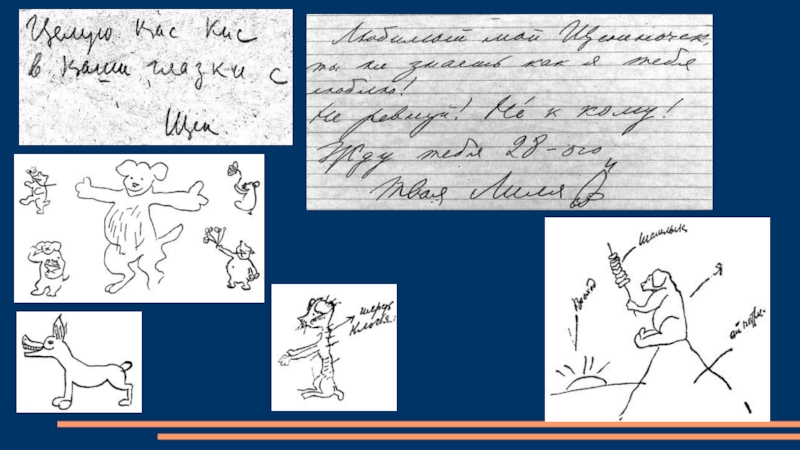 Целую Кис Кис
в Ваши глазки с
Щен
Любимый мой Щениночек,
ты не знаешь как я тебя
люблю!
Не ревнуй! Не к кому!
Жду тебя 28-ого
Твоя Лиля
шерсть
клочья
шашлык
я